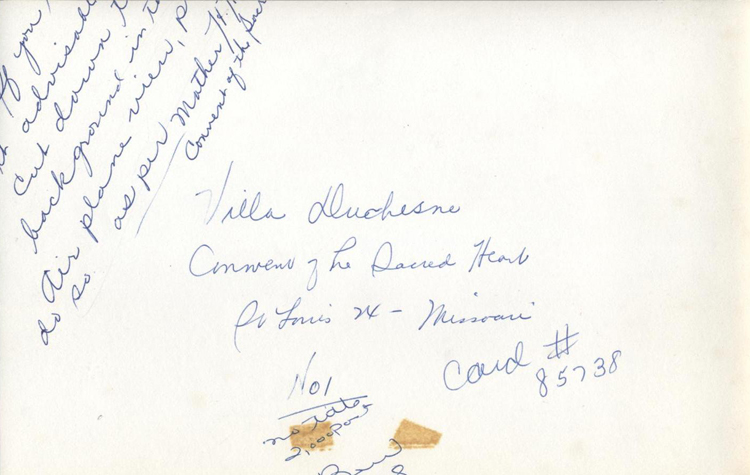 If you
advisable
cut down t
background in t
Air plane view, p
do so
as per Mother H.
Convent of the Sacr
Villa Duchesne
Convent of the Sacred Heart
St Louis 24 - Missouri
Card #
85738
No 1
no